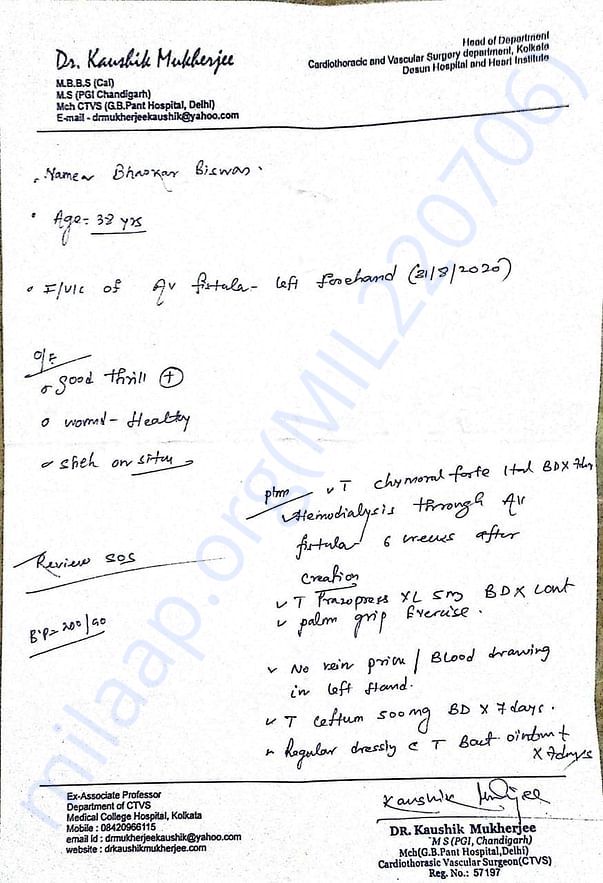 Dr. Kaushik Mukherjee
M.B.B.S (Cal)
M.S (PGI Chandigarh)
Mch CTVS (G.B.Pant Hospital, Delhi)
E-mail - drmukherjeekaushik@yahoo.com
Head of Department
Cardiothoracic and Vascular Surgery department, Kolkata
Desun Hospital and Heart Institute
Name Bhaskar Biswas.
Age- 38 yrs
F/U/c of AV fistula- left forehand (21/8/2020)
O/E
good thrill +
wound- Healthy
stch on situ
Review SOS
B.P= 200/90
plan
T chymoral forte 1 tab BD X 7 day
Hemodialysis through AV
fistula 6 weeks after
creation
T Prazopress XL 5mg BD X cont
palm grip Exercise.
No vein prick / Blood drawing
in left Hand.
T ceftum 500 mg BD X 7 days.
Regular dressing c T Bact ointment
X 7days
Ex-Associate Professor
Department of CTVS
Medical College Hospital, Kolkata
Mobile : 08420966115
email id : drmukherjeekaushik@yahoo.com
website : drkaushikmukherjee.com
Kaushik Mukherjee
DR. Kaushik Mukherjee
M S (PGI, Chandigarh)
Mch(G.B.Pant Hospital,Delhi)
Cardiothorasic Vascular Surgeon(CTVS)
Reg. No.: 57197
milaap.org(MIL220706)